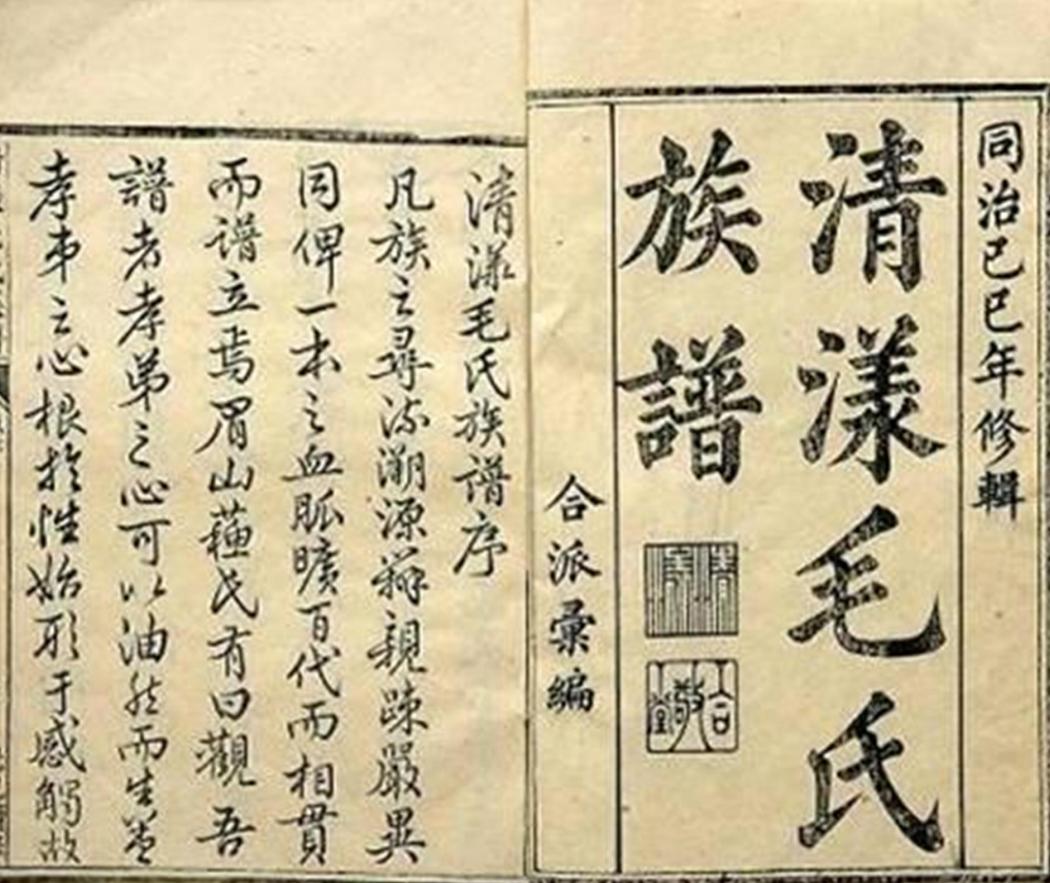 同治己巳年修輯
清漾毛氏
族譜
合敬堂
合派彙編
清漾毛氏族譜序
凡族之尋流溯源辨親疎嚴異
同俾一本之血脈曠百代而相貫
而譜立焉眉山蘇氏有曰觀吾
譜者孝弟之心可以油然而生蓋
孝弟之心根於性始形于感觸故